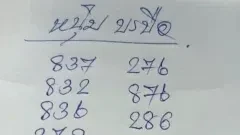 หนุ่ม บรบือ
837 276
832 876
836 286